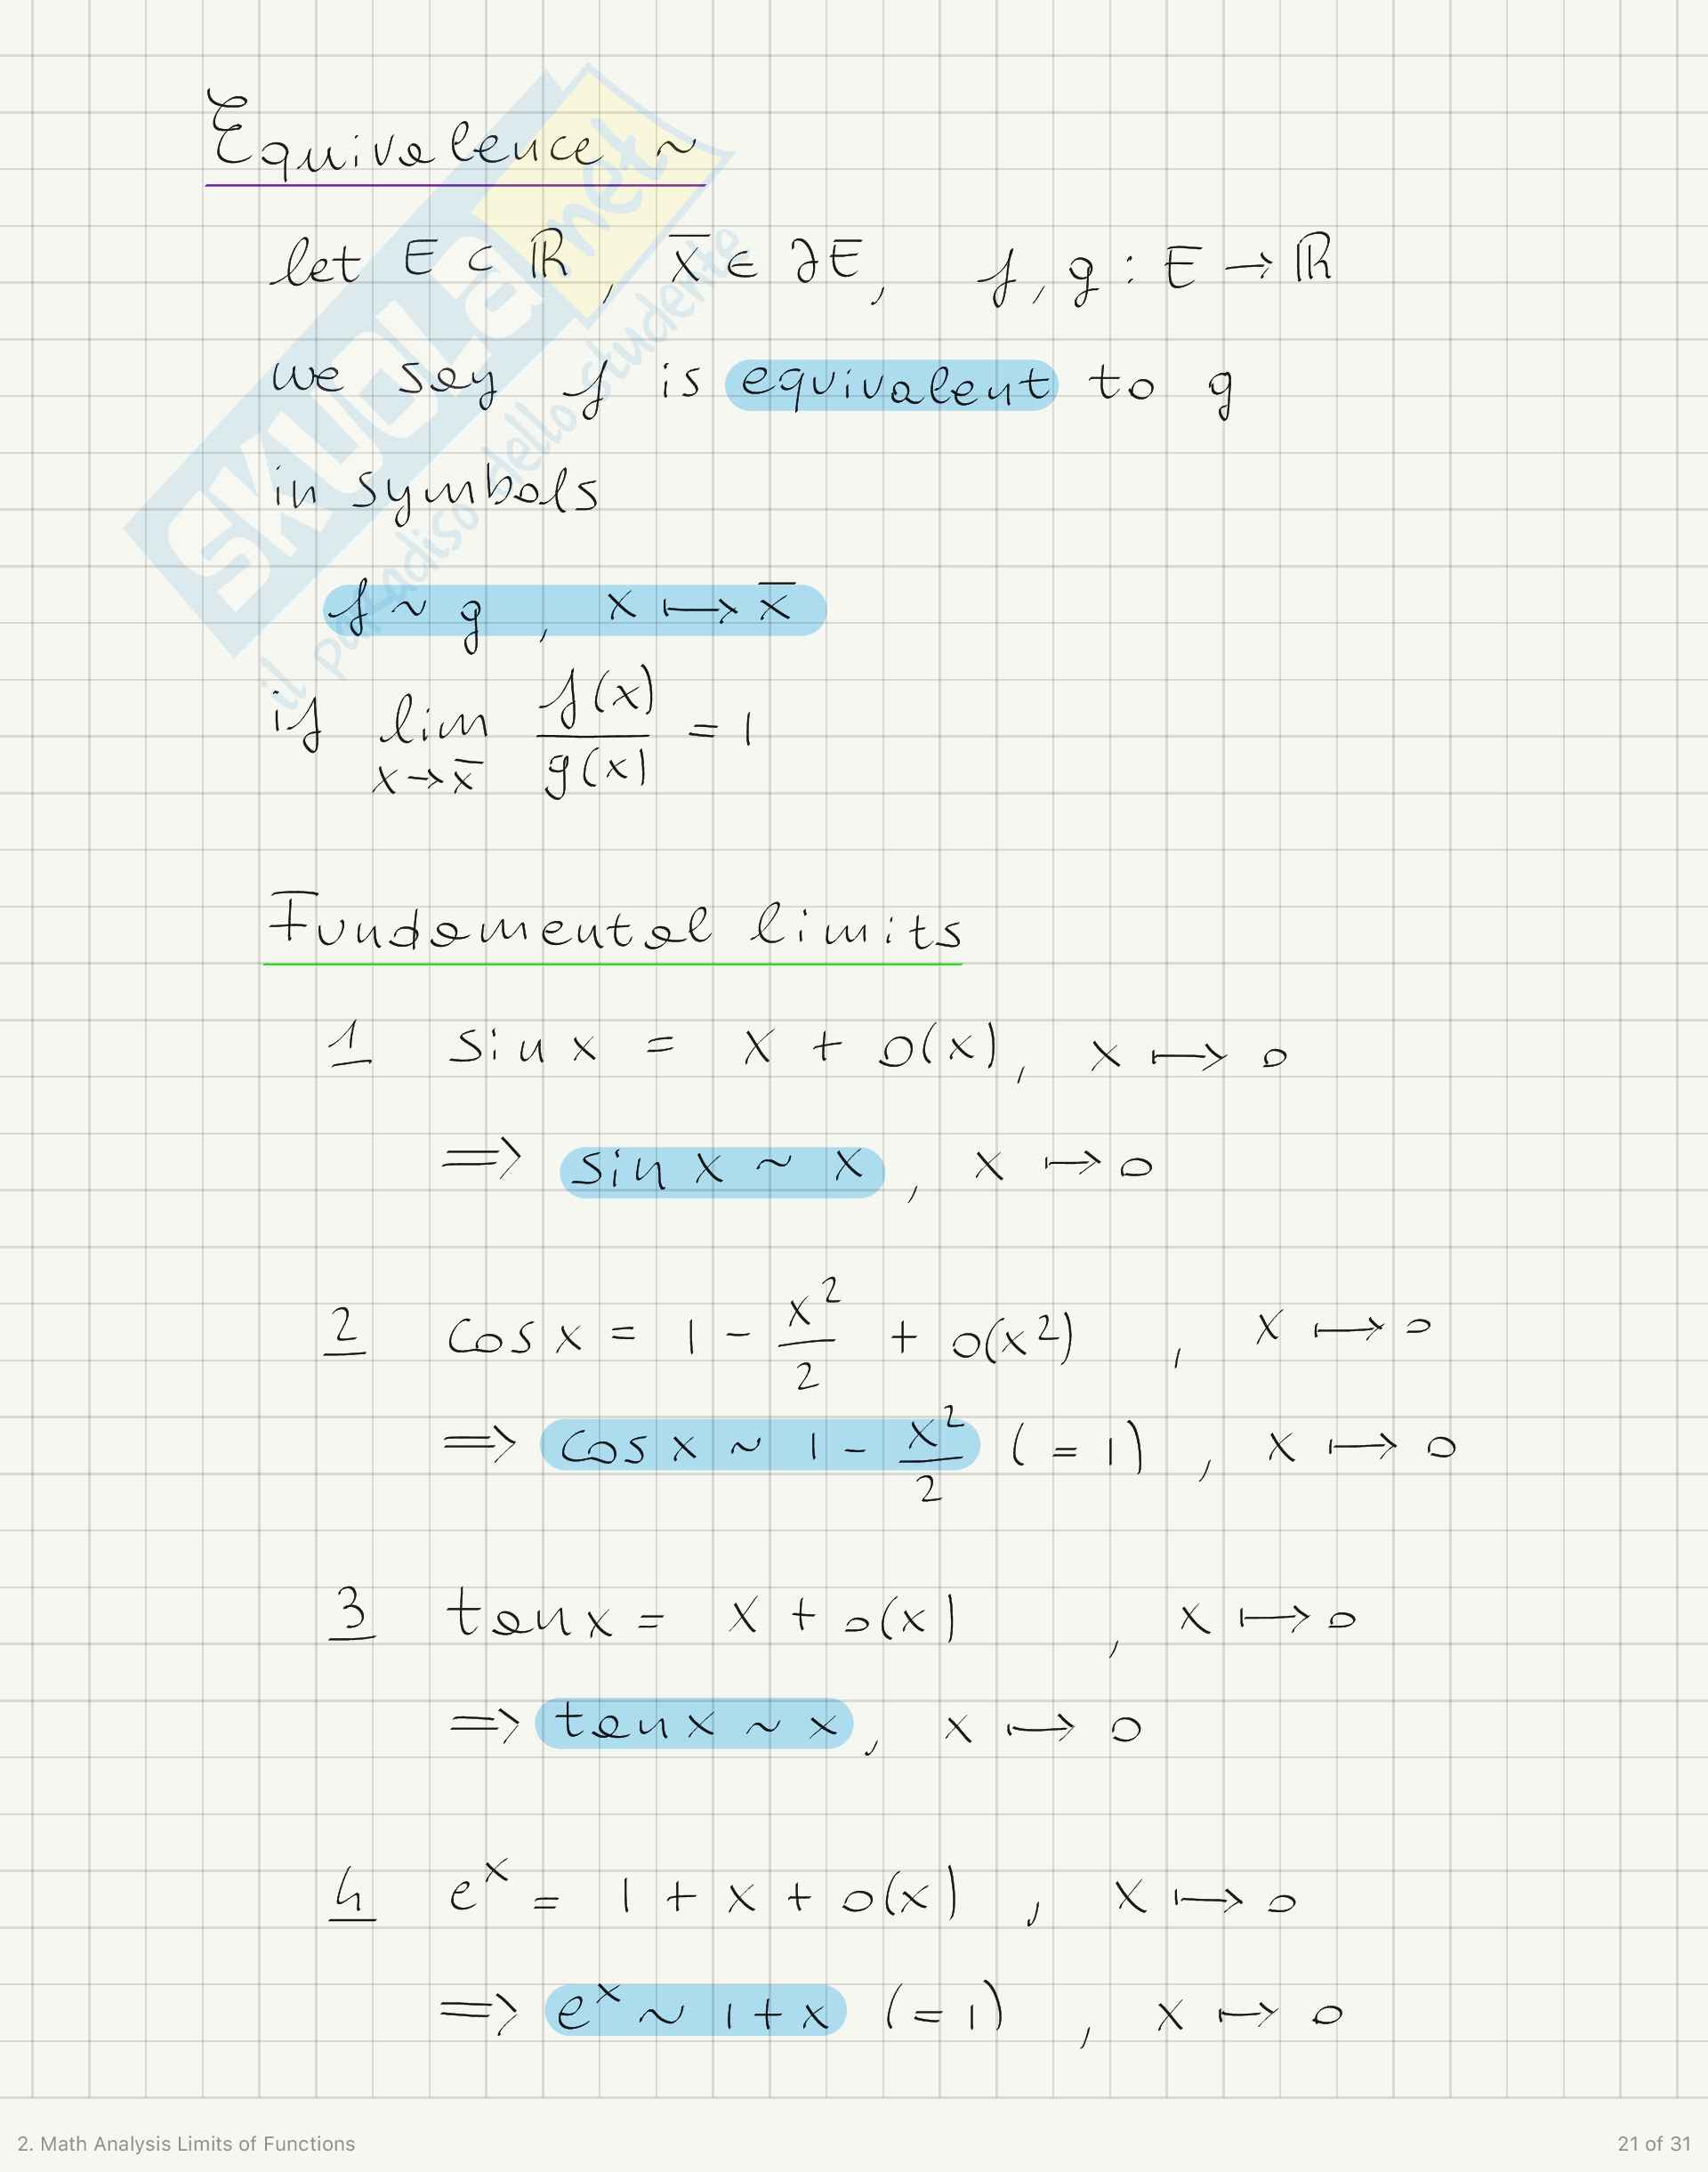 Equivalence ~
let E ⊂ ℝ, x̅ ∈ ∂E, f, g : E → ℝ
we say f is equivalent to g
in symbols
f ~ g , x ↦ x̅
if lim x→x̅ f(x)/g(x) = 1
Fundamental limits
1 sin x = x + o(x), x ↦ 0
⇒ sin x ~ x, x ↦ 0
2 cos x = 1 - x²/2 + o(x²) , x ↦ 0
⇒ cos x ~ 1 - x²/2 (= 1) , x ↦ 0
3 tan x = x + o(x) , x ↦ 0
⇒ tan x ~ x, x ↦ 0
4 eˣ = 1 + x + o(x) , x ↦ 0
⇒ eˣ ~ 1 + x (= 1) , x ↦ 0
SKUOLA.net
il paradiso dello studente
2. Math Analysis Limits of Functions
21 of 31